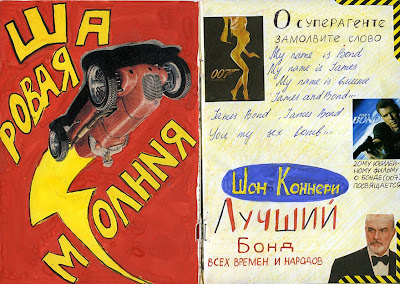 ША
РОВАЯ
МОЛНИЯ
О СУПЕРАГЕНТЕ
ЗАМОЛВИТЕ СЛОВО
My name is Bond
My name is James
My name is
James and Bond...
James Bond, James Bond
You my sex bomb!...
007
20МУ ЮБИЛЕЙ-
НОМУ ФИЛЬМУ
О БОНДЕ (007)
ПОСВЯЩАЕТСЯ
Шон Коннери
ЛУЧШИЙ
БОНД
ВСЕХ ВРЕМЕН И НАРОДОВ